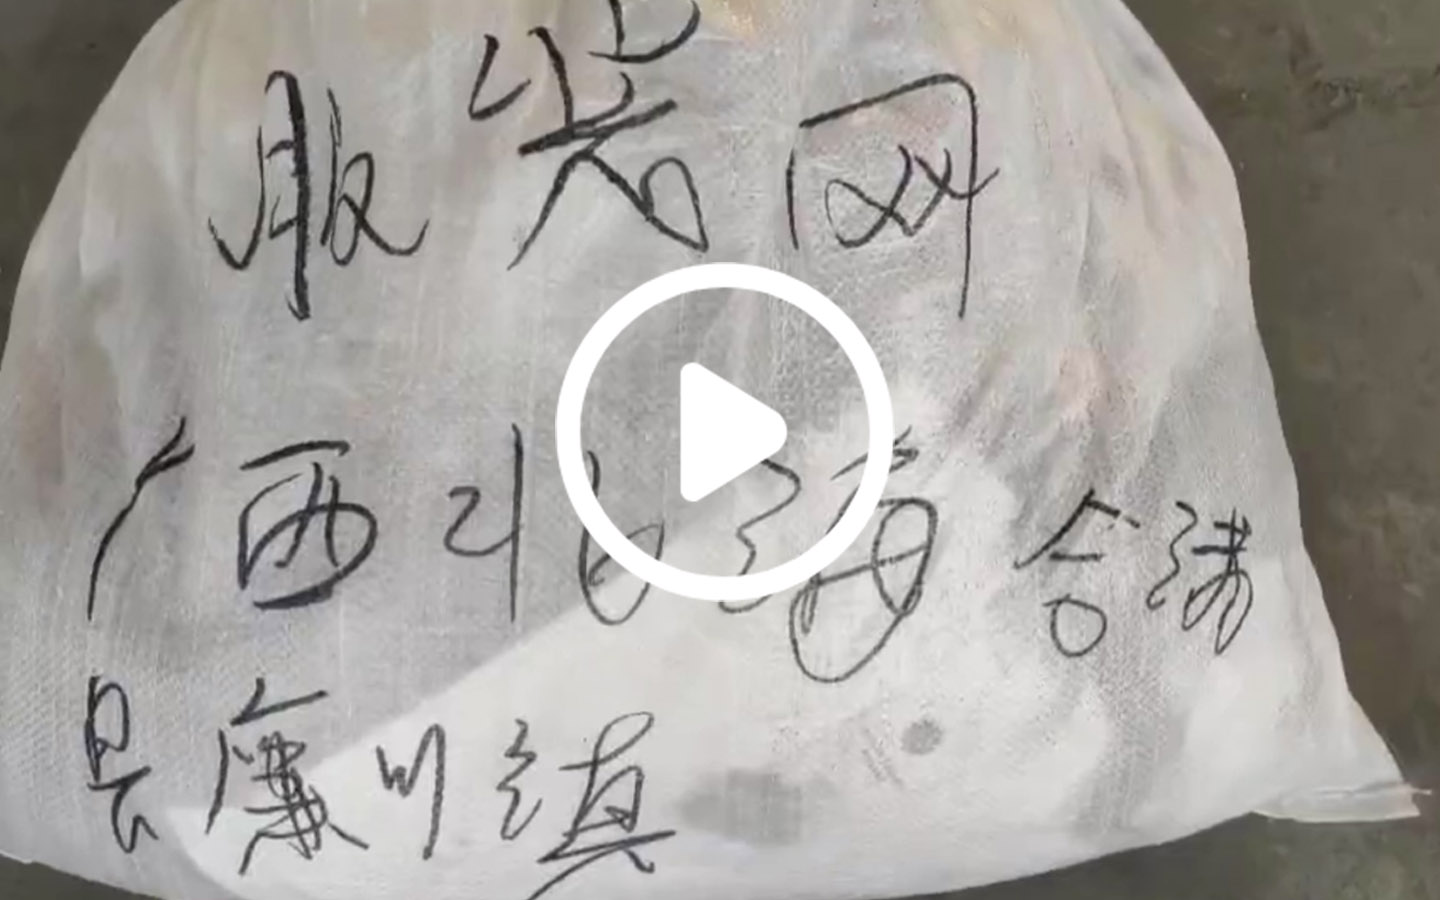 服装网
广西北海合浦
县廉州镇